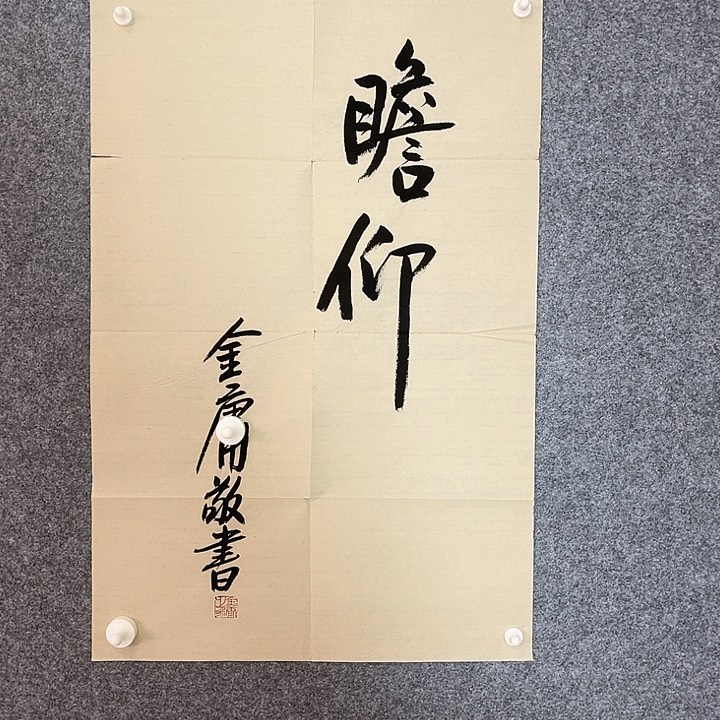 瞻仰
金庸敬書